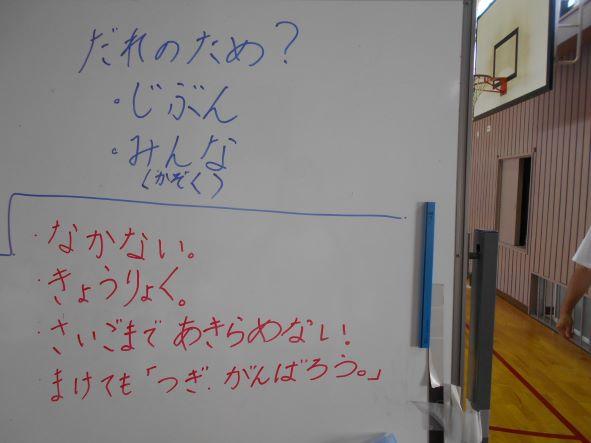 だれのため?
・じぶん
・みんな
(かぞく)
・なかない。
・きょうりょく。
・さいごまであきらめない!
・まけても「つぎ.がんばろう。」